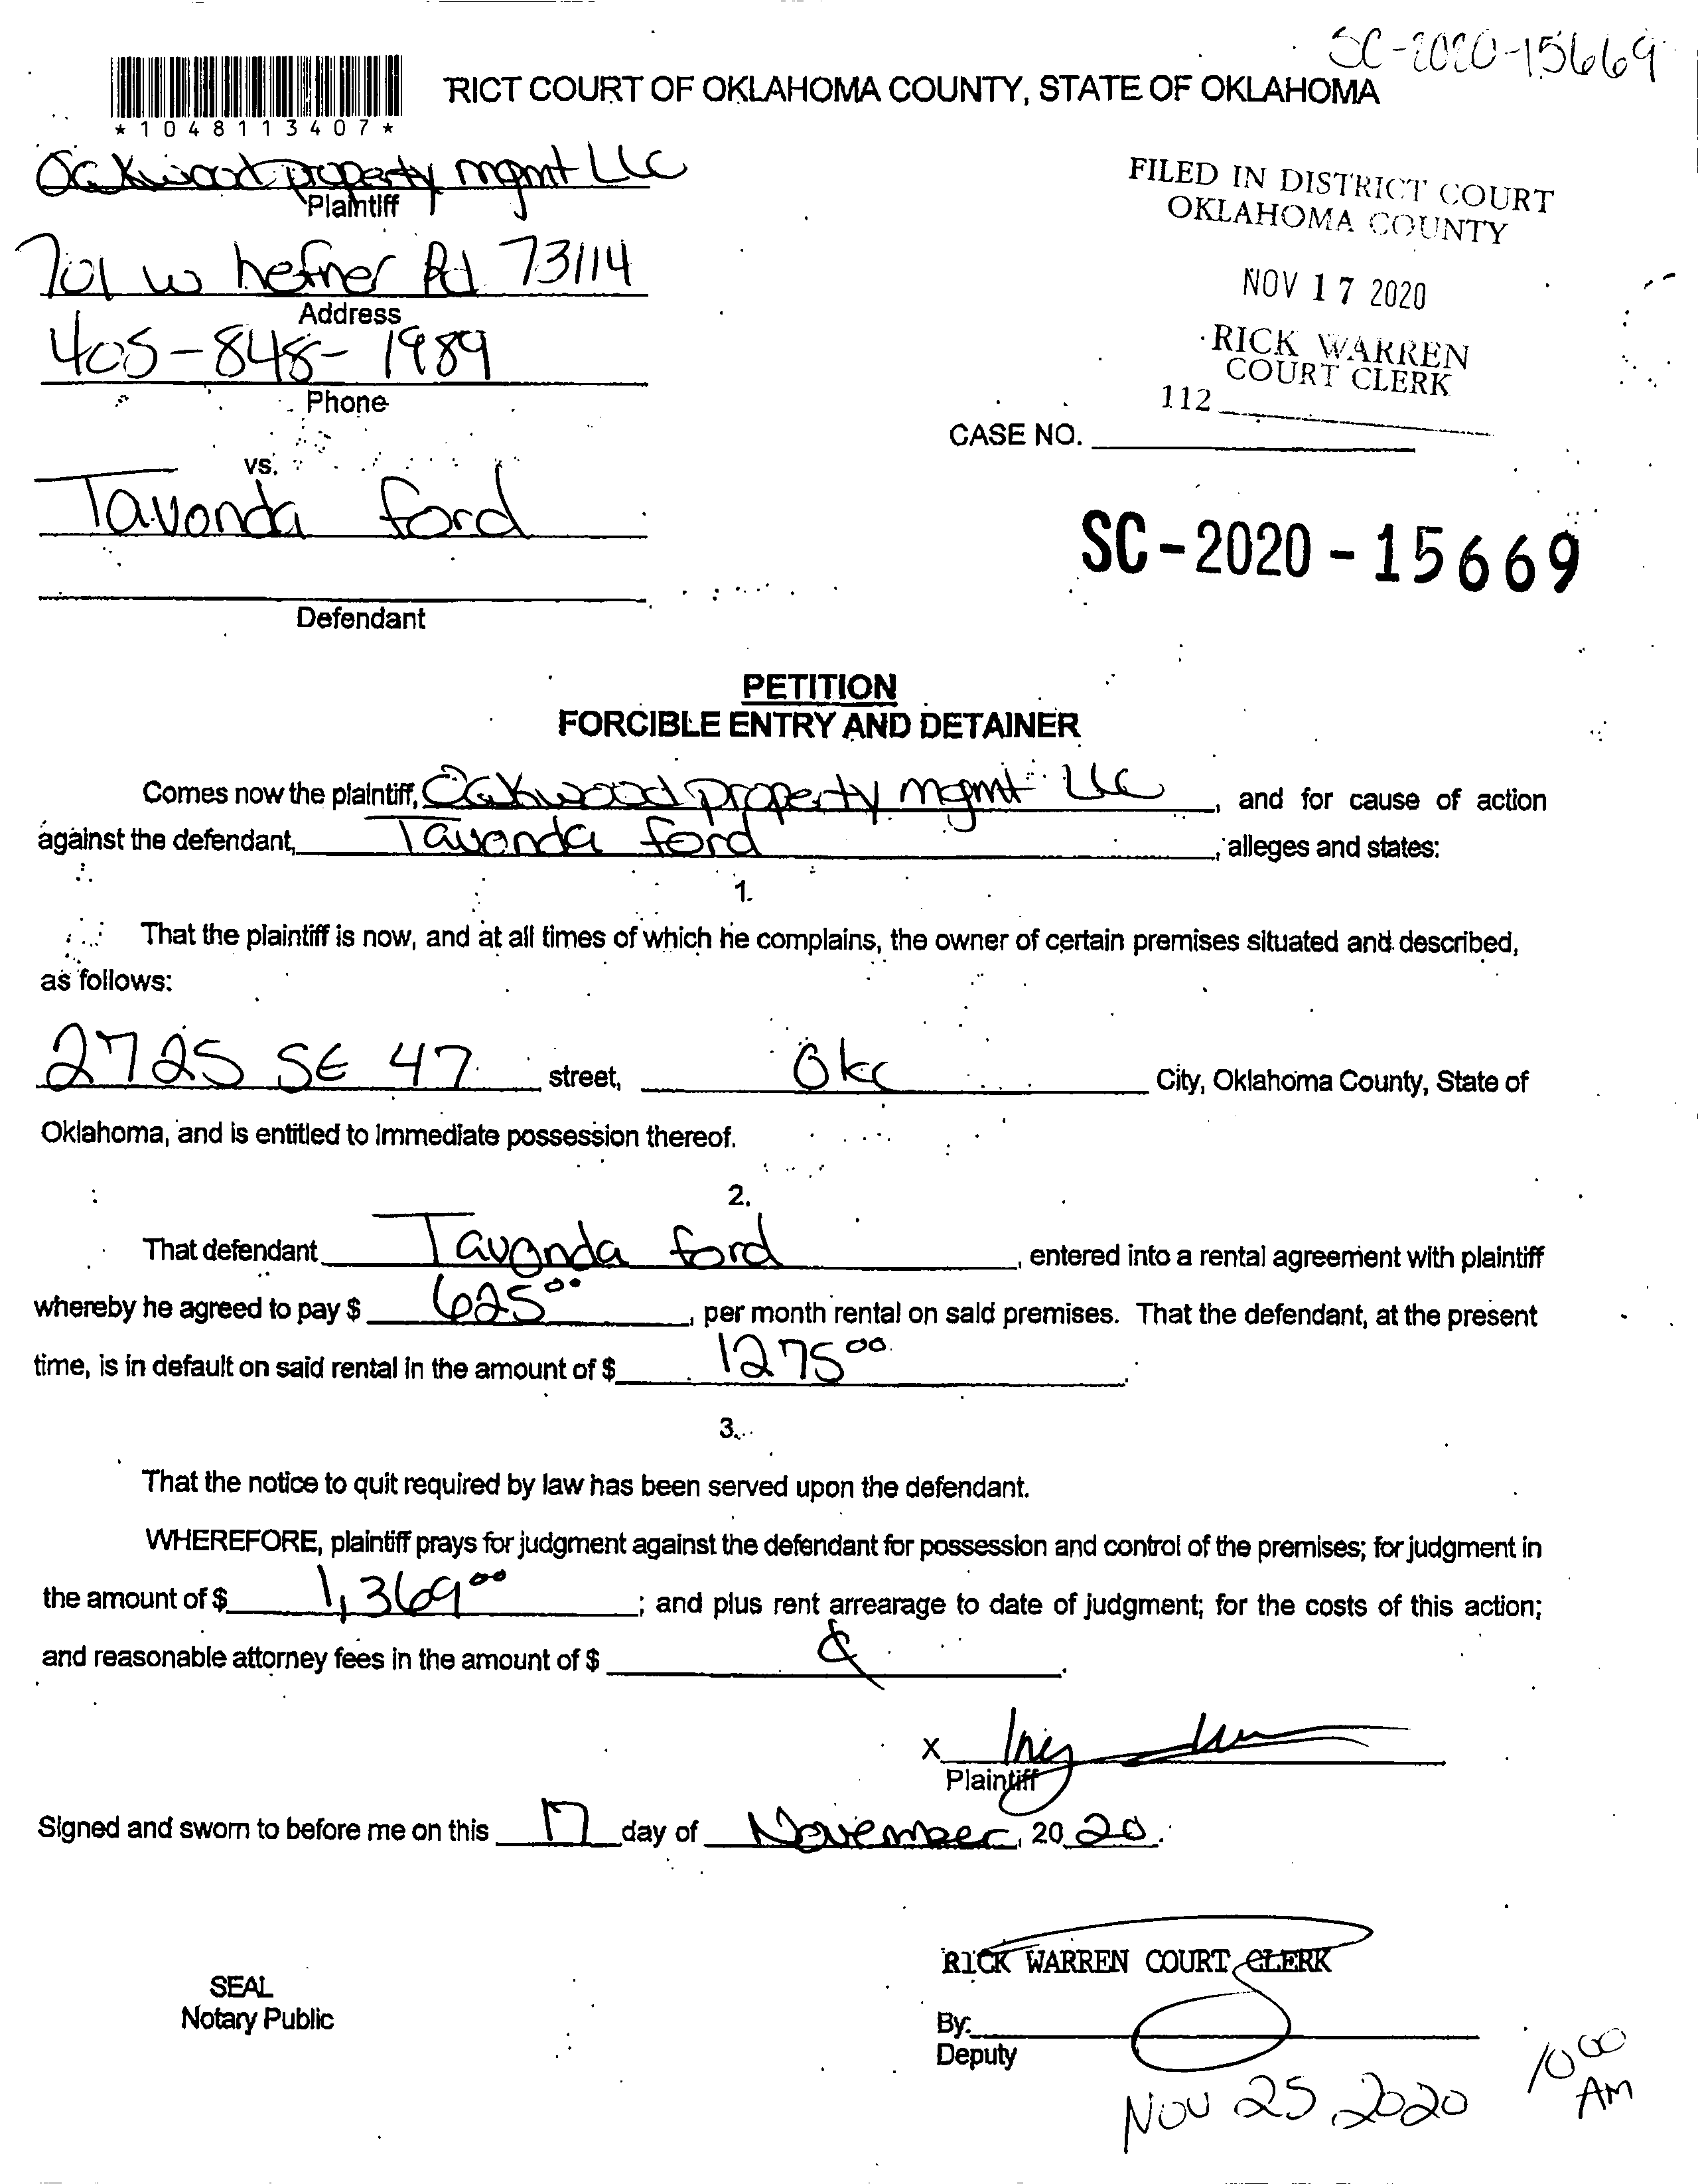 SC-2020-15669
RICT COURT OF OKLAHOMA COUNTY, STATE OF OKLAHOMA
*1048113407*
Oakwood property mgmt LLC
Plaintiff
FILED IN DISTRICT COURT
OKLAHOMA COUNTY
701 w hefner Rd 73114
Address
NOV 17 2020
405-848-1989
Phone
RICK WARREN
COURT CLERK
112
CASE NO.
vs.
Tavonda ford
SC-2020-15669
Defendant
PETITION
FORCIBLE ENTRY AND DETAINER
Comes now the plaintiff, Oakwood property mgmt LLC, and for cause of action
against the defendant, Tavonda ford, alleges and states:
1.
That the plaintiff is now, and at all times of which he complains, the owner of certain premises situated and described,
as follows:
2725 SE 47 street, Okc City, Oklahoma County, State of
Oklahoma, and is entitled to immediate possession thereof.
2.
That defendant Tavonda ford, entered into a rental agreement with plaintiff
whereby he agreed to pay $ 625.00, per month rental on said premises. That the defendant, at the present
time, is in default on said rental in the amount of $ 1275 00.
3.
That the notice to quit required by law has been served upon the defendant.
WHEREFORE, plaintiff prays for judgment against the defendant for possession and control of the premises; for judgment in
the amount of $ 1,369 00; and plus rent arrearage to date of judgment; for the costs of this action;
and reasonable attorney fees in the amount of $
X
Plaintiff
Signed and sworn to before me on this 17 day of November, 20 20.
RICK WARREN COURT CLERK
SEAL
Notary Public
By:
Deputy
Nov 25 2020
10 00
AM